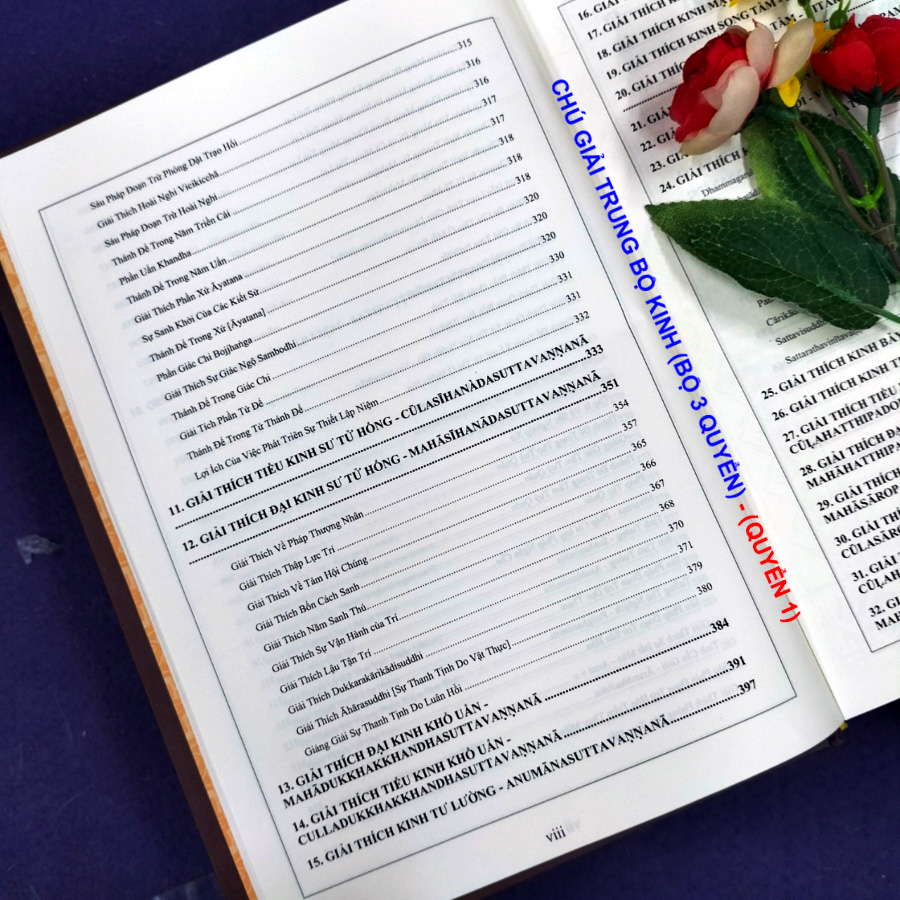 Sáu Pháp Đoạn Trừ Phóng Dật Trạo Hối 315
Giải Thích Hoài Nghi Vicikicchā 316
Sáu Pháp Đoạn Trừ Hoài Nghi 316
Thánh Đế Trong Năm Triền Cái 317
Phần Uẩn Khandha 317
Thánh Đế Trong Năm Uẩn 318
Giải Thích Phần Xứ Āyatana 318
Sự Sanh Khởi Của Các Kiết Sử 318
Thánh Đế Trong Xứ [Āyatana] 320
Phần Giác Chi Bojjhaṅga 320
Giải Thích Sự Giác Ngộ Sambodhi 320
Thánh Đế Trong Giác Chi 330
Giải Tích Phần Tứ Đế 331
Thánh Đế Trong Tứ Thánh Đế 331
Lợi Ích Của Việc Phát Triển Sự Thiết Lập Niệm 332
11. GIẢI THÍCH TIỂU KINH SƯ TỬ HỐNG - CŪLASĪHANĀDASUTTAVAṆṆANĀ
333
12. GIẢI THÍCH ĐẠI KINH SƯ TỬ HỐNG - MAHĀSĪHANĀDASUTTAVAṆṆANĀ
351
Giải Thích Về Pháp Thượng Nhân 354
Giải Thích Thập Lực Trí 357
Giải Thích Về Tám Hội Chúng 365
Giải Thích Bốn Cách Sanh 366
Giải Thích Năm Sanh Thú 367
Giải Thích Sự Vận Hành của Trí 368
Giải Thích Lậu Tận Trí 370
Giải Thích Dukkarakārikādisuddhi 371
Giải Thích Āhārasuddhi [Sự Thanh Tịnh Do Vật Thực] 379
Giảng Giải Sự Thanh Tịnh Do Luân Hồi 380
13. GIẢI THÍCH ĐẠI KINH KHỔ UẨN -
MAHĀDUKKHAKKHANDHASUTTAVAṆṆANĀ 384
14. GIẢI THÍCH TIỂU KINH KHỔ UẨN -
CULLADUKKHAKKHANDHASUTTAVAṆṆANĀ 391
15. GIẢI THÍCH KINH TƯ LƯỜNG - ANUMĀNASUTTAVAṆṆANĀ 397
viii
CHÚ GIẢI TRUNG BỘ KINH (BỘ 3 QUYỂN) - (QUYỂN 1)
16. GIẢI THÍCH KINH
17. GIẢI THÍCH KINH
18. GIẢI THÍCH KINH
19. GIẢI THÍCH KINH SONG TẦM
20. GIẢI THÍCH
21. GIẢI
22. GIẢI
23. GIẢI THÍCH
24. GIẢI THÍCH
25. GIẢI THÍCH KINH
26. GIẢI THÍCH KINH
27. GIẢI THÍCH TIỂU
28. GIẢI THÍCH
29. GIẢI THÍCH
30. GIẢI THÍCH
31. GIẢI THÍCH
32. GIẢI